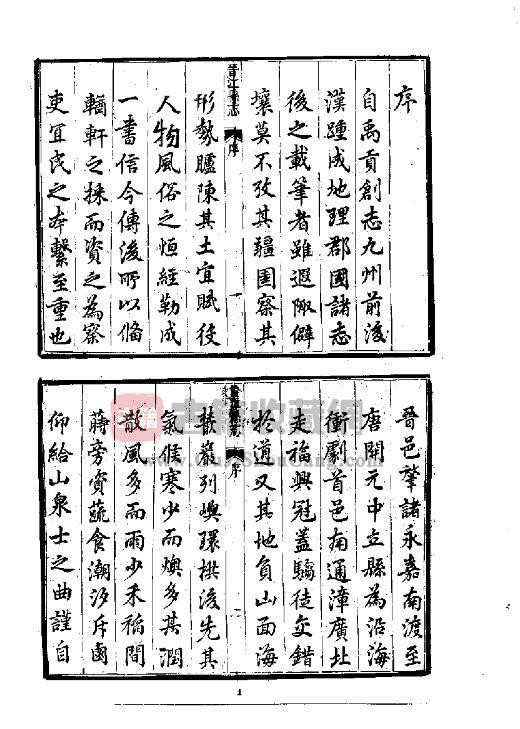 序
自禹貢創志九州前後
漢踵成地理郡國諸志
後之載筆者雖遐陬僻
壤莫不攷其疆圉察其
晉江縣志
序
一
形勢臚陳其土宜賦役
人物風俗之恒經勒成
一書信今傳後所以俻
輶軒之採而資之為察
吏宜民之本繫至重也
晉邑肇諸永嘉南渡至
唐開元中立縣為沿海
衝劇首邑南通漳廣北
走福興冠蓋騶徒交錯
於道又其地負山面海
晉江縣志
序
二
列嶼環拱後先其
氣候寒少而燠多其潤
散風多而雨少禾稻間
蒔旁資蔬食潮汐斥鹵
仰給山泉士之曲謹自
古籍收藏网
1